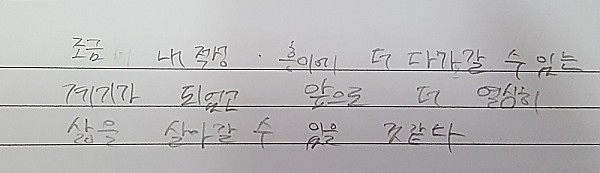 조금 더 내 적성 · 흥미에 더 다가갈 수 있는
계기가 되었고 앞으로 더 열심히
삶을 살아갈 수 있을 것같다